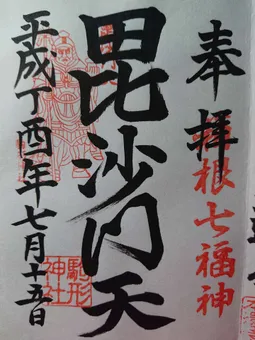 奉拝
箱根七福神
毘沙門天
駒形神社
平成丁酉年七月十五日